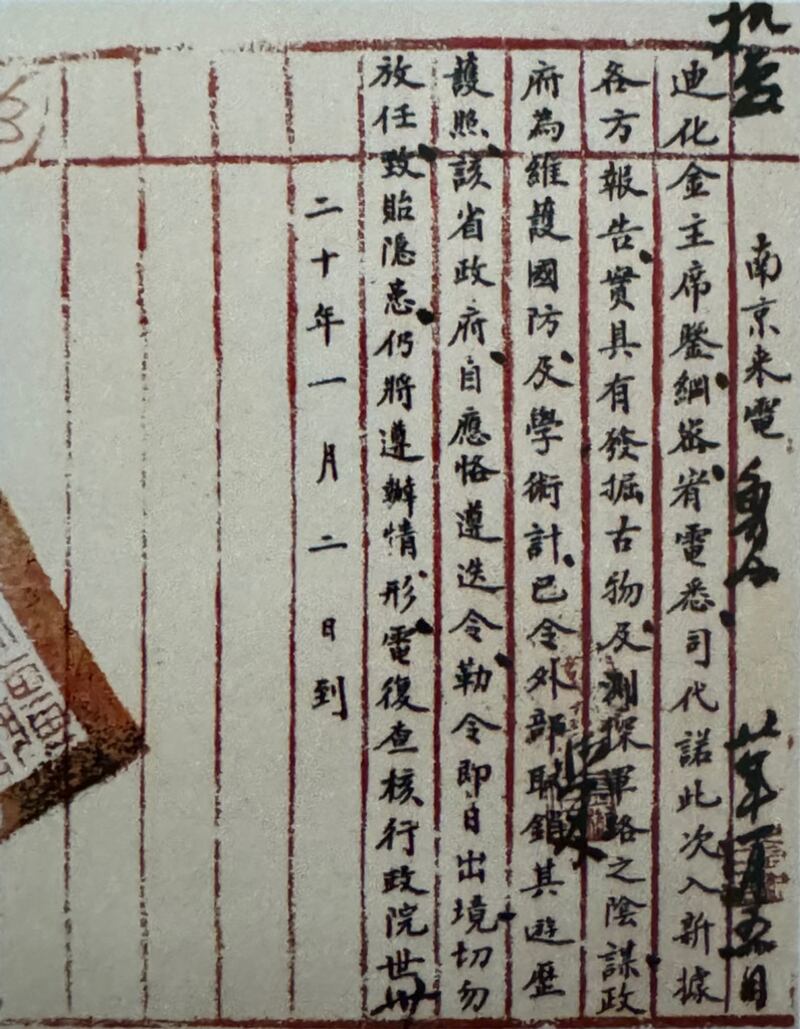 南京来電 廿年一月五日
迪化金主席鑒綱密宥電悉司代諾此次入新據
各方報告實具有發掘古物及測探軍路之陰謀政
府為維護國防及學術計已令外部取銷其遊歷
護照該省政府自應恪遵迭令勒令即日出境切勿
放任致貽隱患仍將遵辦情形電復查核行政院世
二十年一月二日到